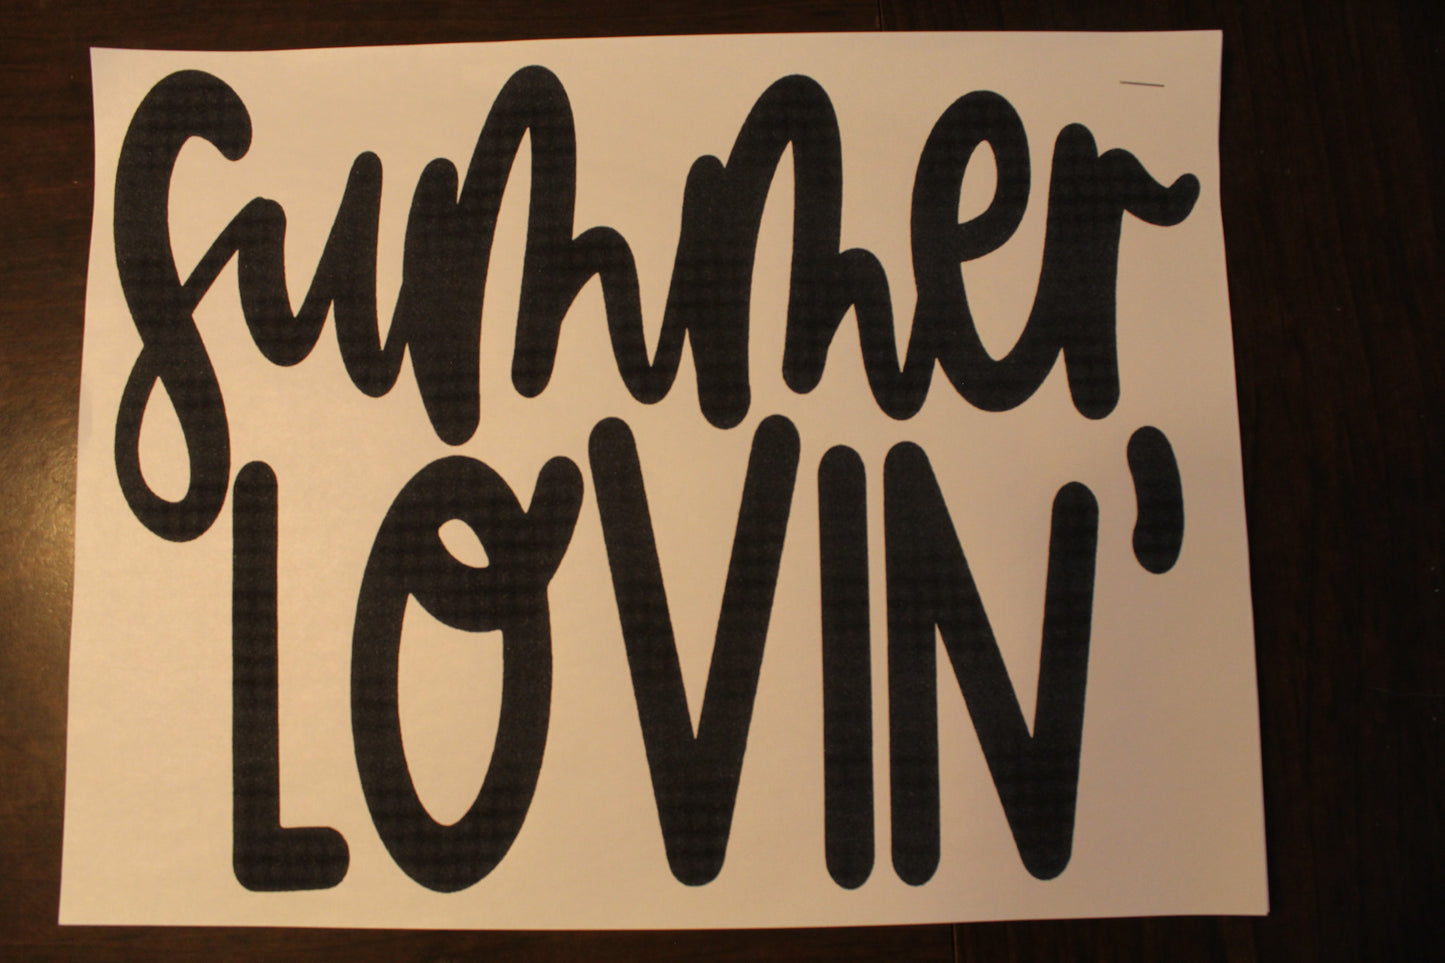 summer
LOVIN'